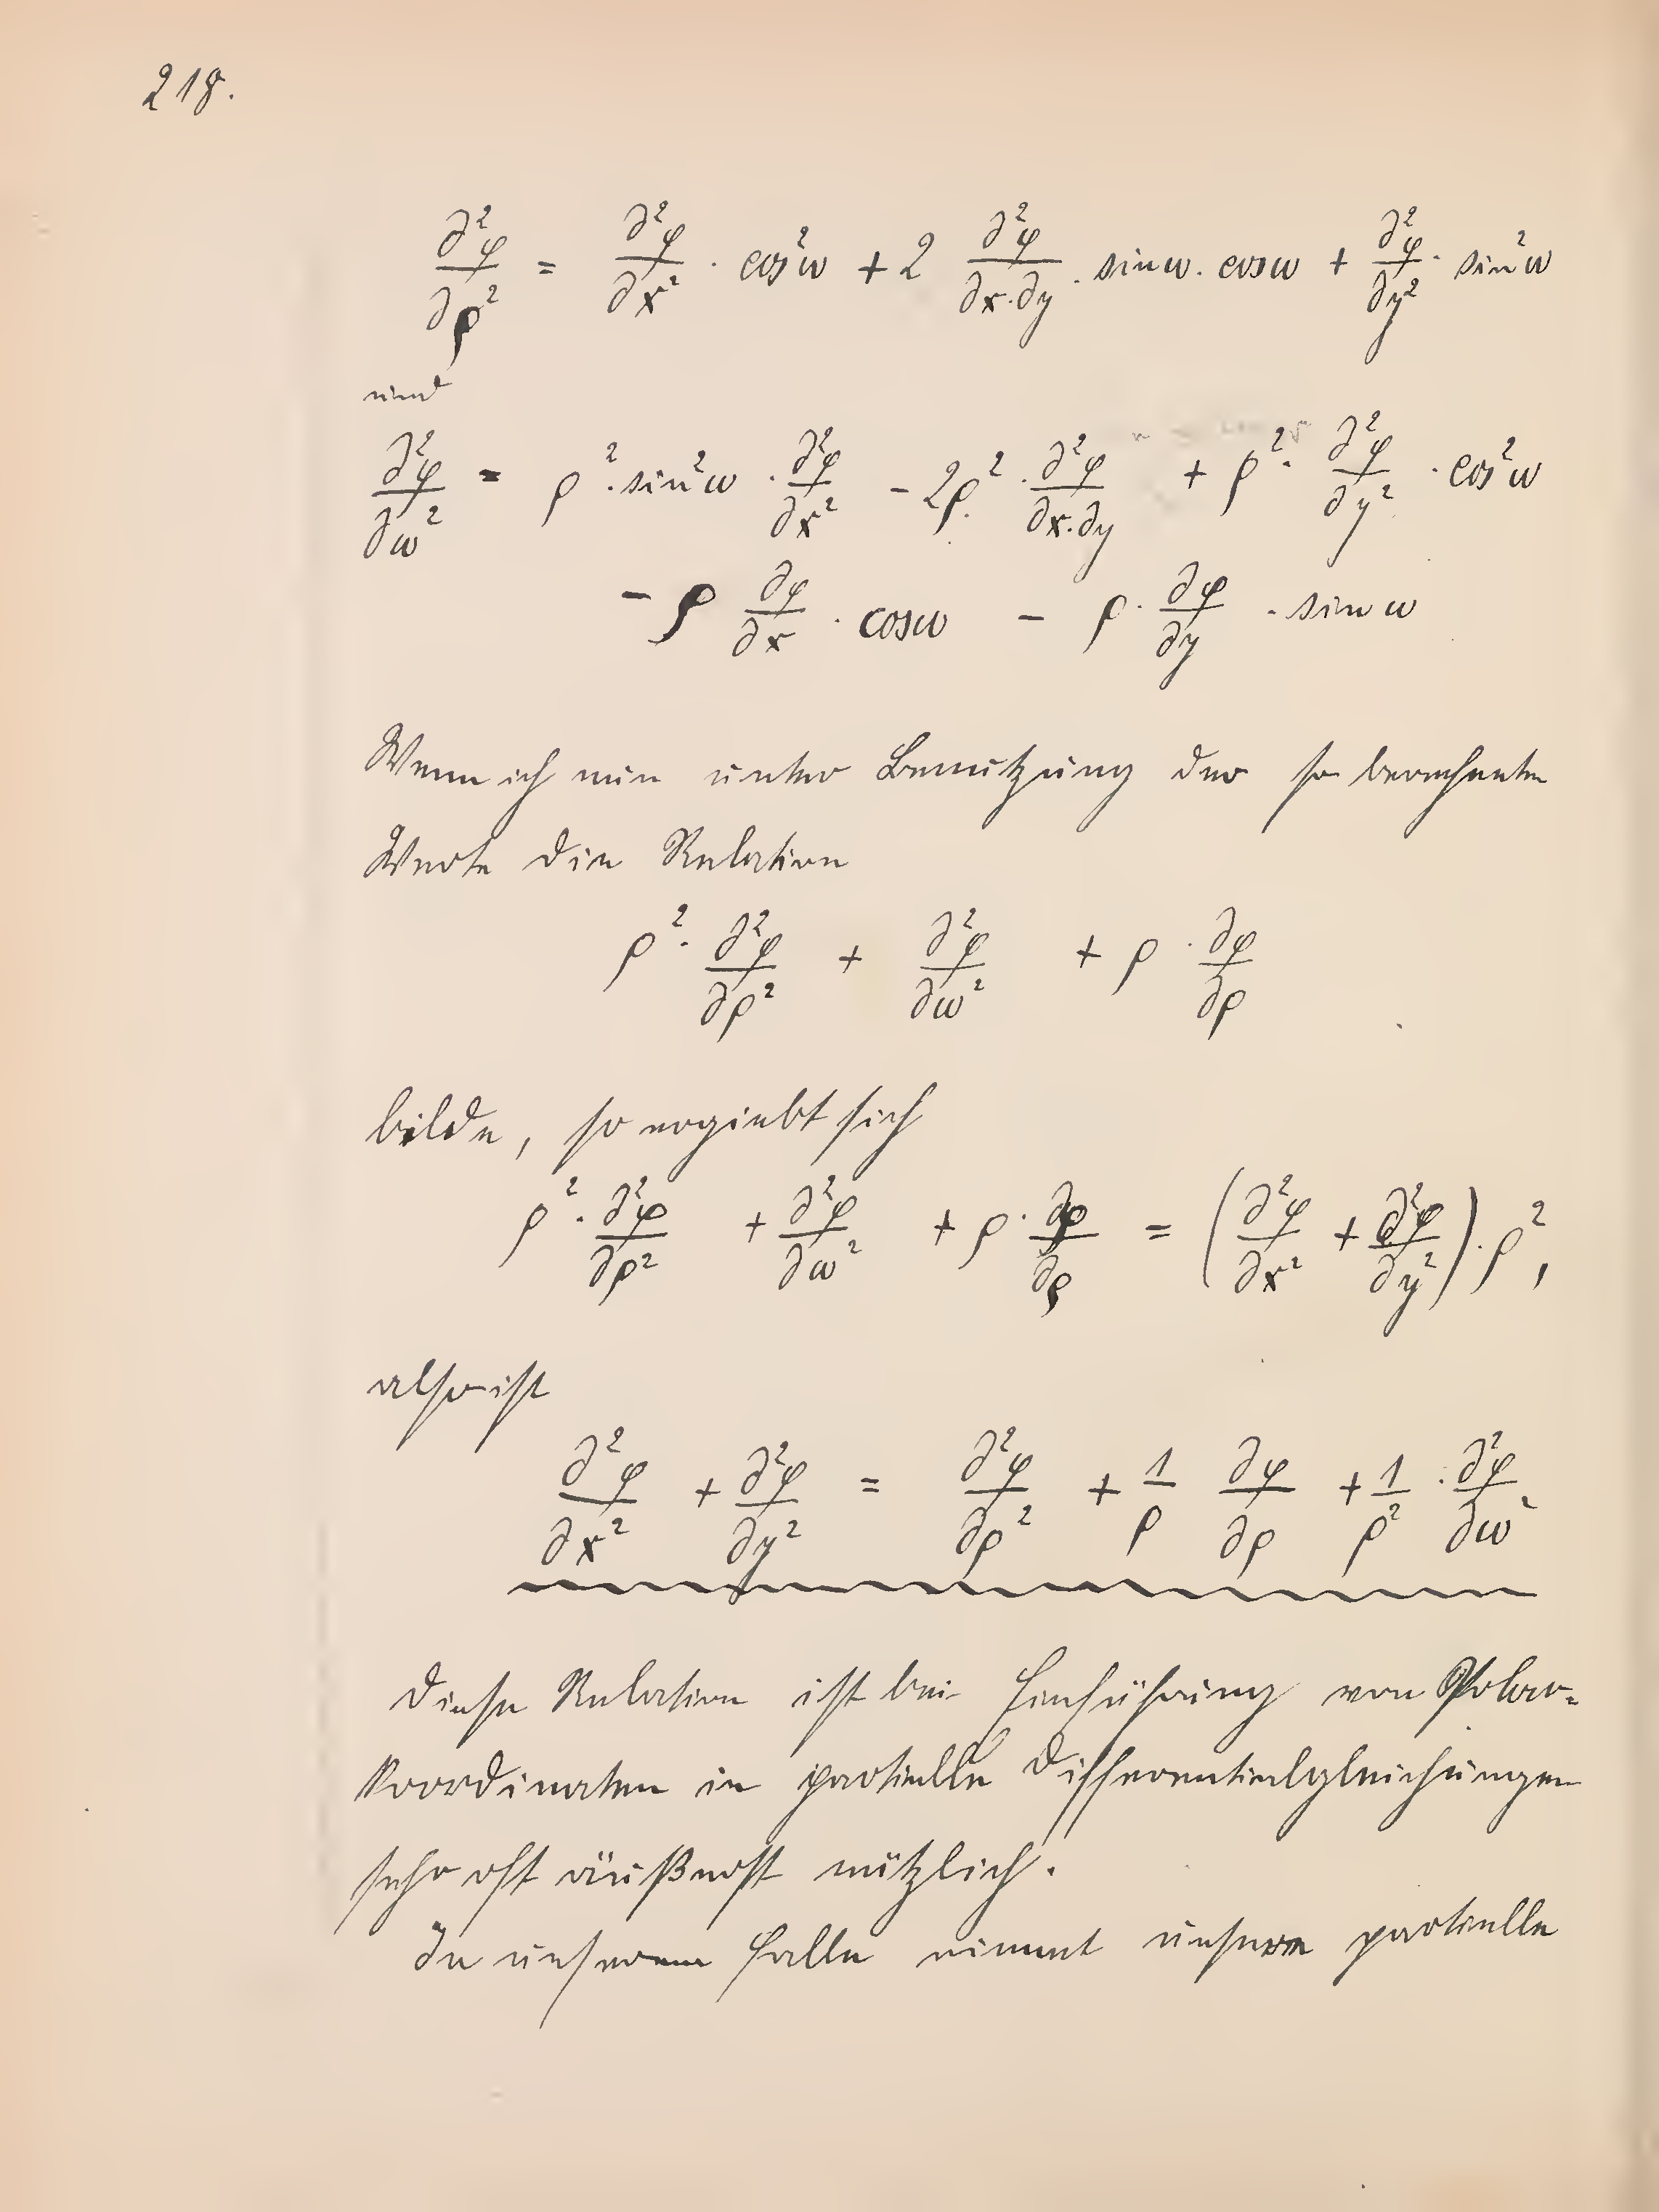 218.
∂²φ/∂ρ² = ∂²φ/∂x² · cos²ω + 2 ∂²φ/∂x·∂y · sinω · cosω + ∂²φ/∂y² · sin²ω
und
∂²φ/∂ω² = ρ² · sin²ω · ∂²φ/∂x² - 2ρ² · ∂²φ/∂x·∂y + ρ² · ∂²φ/∂y² · cos²ω
- ρ ∂φ/∂x · cosω - ρ · ∂φ/∂y · sinω
Wenn ich nun unter Benutzung der so berechneten
Werte die Relation
ρ² · ∂²φ/∂ρ² + ∂²φ/∂ω² + ρ · ∂φ/∂ρ
bilde, so ergiebt sich
ρ² · ∂²φ/∂ρ² + ∂²φ/∂ω² + ρ · ∂φ/∂ρ = (∂²φ/∂x² + ∂²φ/∂y²) · ρ²,
also ist
∂²φ/∂x² + ∂²φ/∂y² = ∂²φ/∂ρ² + 1/ρ ∂φ/∂ρ + 1/ρ² · ∂²φ/∂ω²
Diese Relation ist bei Einführung von Polar-
koordinaten in partielle Differentialgleichungen
sehr oft äußerst nützlich.
In unserem Falle nimmt unsere partielle